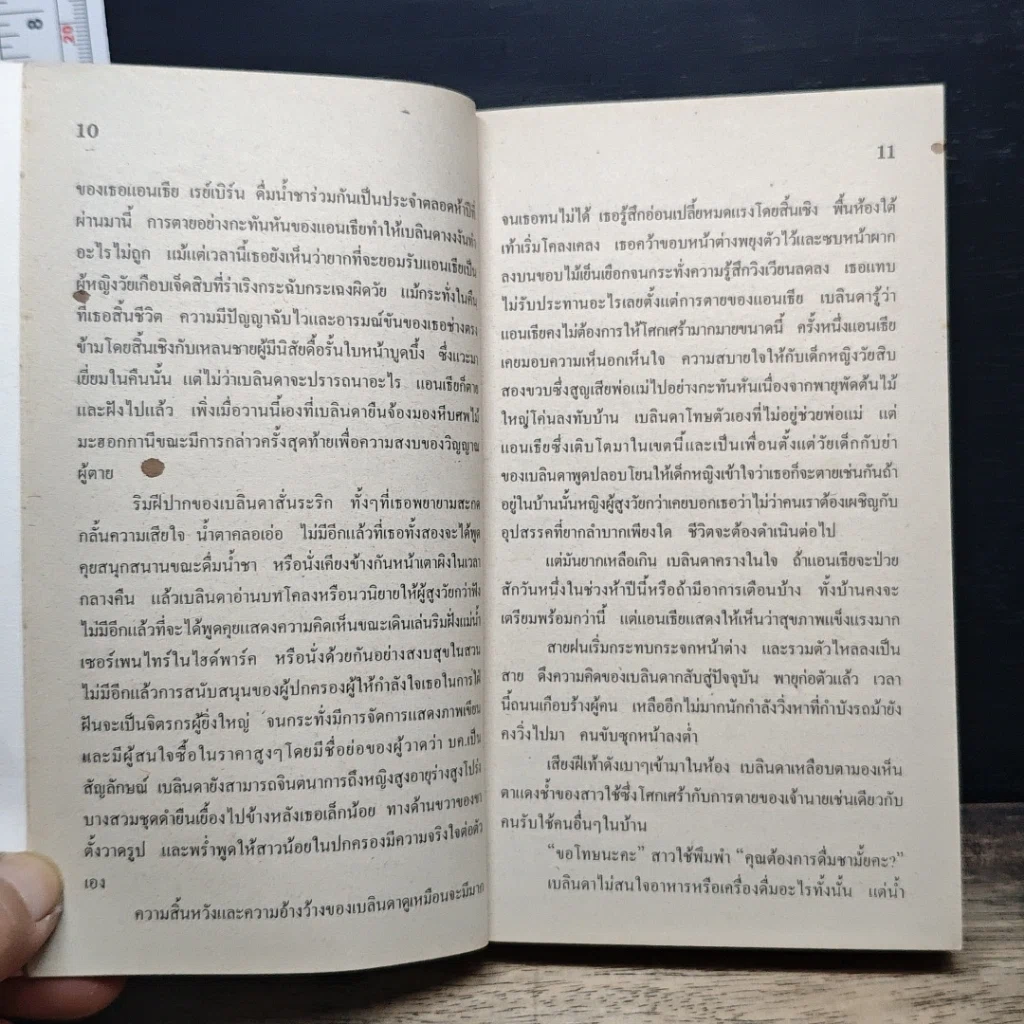 8
20
10
ของเธอแอนเธีย เรย์เบิร์น ดื่มน้ำชาร่วมกันเป็นประจำตลอดห้าปีที่
ผ่านมานี้ การตายอย่างกะทันหันของแอนเธียทำให้เบลินดางงงันทำ
อะไรไม่ถูก แม้แต่เวลานี้เธอยังเห็นว่ายากที่จะยอมรับแอนเธียเป็น
ผู้หญิงวัยเกือบเจ็ดสิบที่ร่าเริงกระฉับกระเฉงผิดวัย แม้กระทั่งในคืน
ที่เธอสิ้นชีวิต ความมีปัญญาฉับไวและอารมณ์ขันของเธอช่างตรง
ข้ามโดยสิ้นเชิงกับเหลนชายผู้มีนิสัยดื้อรั้นใบหน้าบูดบึ้ง ซึ่งแวะมา
เยี่ยมในคืนนั้น แต่ไม่ว่าเบลินดาจะปรารถนาอะไร แอนเธียก็ตาย
และฝังไปแล้ว เพิ่งเมื่อวานนี้เองที่เบลินดายืนจ้องมองหีบศพไม้
มะฮอกกานีขณะมีการกล่าวครั้งสุดท้ายเพื่อความสงบของวิญญาณ
ผู้ตาย
ริมฝีปากของเบลินดาสั่นระริก ทั้งๆที่เธอพยายามสะกด
กลั้นความเสียใจ น้ำตาคลอเอ่อ ไม่มีอีกแล้วที่เธอทั้งสองจะได้พูด
คุยสนุกสนานขณะดื่มน้ำชา หรือนั่งเคียงข้างกันหน้าเตาผิงในเวลา
กลางคืน แล้วเบลินดาอ่านบทโคลงหรือนวนิยายให้ผู้สูงวัยกว่าฟัง
ไม่มีอีกแล้วที่จะได้พูดคุยแสดงความคิดเห็นขณะเดินเล่นริมฝั่งแม่น้ำ
เซอร์เพนไทร์ในไฮด์พาร์ค หรือนั่งด้วยกันอย่างสงบสุขในสวน
ไม่มีอีกแล้วการสนับสนุนของผู้ปกครองผู้ให้กำลังใจเธอในการใฝ่
ฝันจะเป็นจิตรกรผู้ยิ่งใหญ่ จนกระทั่งมีการจัดการแสดงภาพเขียน
และมีผู้สนใจซื้อในราคาสูงๆโดยมีชื่อย่อของผู้วาดว่า บค.เป็น
สัญลักษณ์ เบลินดายังสามารถจินตนาการถึงหญิงสูงอายุร่างสูงโปร่ง
บางสวมชุดดำยืนเยื้องไปข้างหลังเธอเล็กน้อย ทางด้านขวาของขา
ตั้งวาดรูป และพร่ำพูดให้สาวน้อยในปกครองมีความจริงใจต่อตัว
เอง
ความสิ้นหวังและความอ้างว้างของเบลินดาดูเหมือนจะมีมาก
11
จนเธอทนไม่ได้ เธอรู้สึกอ่อนเปลี้ยหมดแรงโดยสิ้นเชิง พื้นห้องใต้
เท้าเริ่มโคลงเคลง เธอคว้าขอบหน้าต่างพยุงตัวไว้และซบหน้าผาก
ลงบนขอบไม้เย็นเยือกจนกระทั่งความรู้สึกวิงเวียนลดลง เธอแทบ
ไม่รับประทานอะไรเลยตั้งแต่การตายของแอนเธีย เบลินดารู้ว่า
แอนเธียคงไม่ต้องการให้โศกเศร้ามากมายขนาดนี้ ครั้งหนึ่งแอนเธีย
เคยมอบความเห็นอกเห็นใจ ความสบายใจให้กับเด็กหญิงวัยสิบ
สองขวบซึ่งสูญเสียพ่อแม่ไปอย่างกะทันหันเนื่องจากพายุพัดต้นไม้
ใหญ่โค่นลงทับบ้าน เบลินดาโทษตัวเองที่ไม่อยู่ช่วยพ่อแม่ แต่
แอนเธียซึ่งเติบโตมาในเขตนี้และเป็นเพื่อนตั้งแต่วัยเด็กกับย่า
ของเบลินดาพูดปลอบโยนให้เด็กหญิงเข้าใจว่าเธอก็จะตายเช่นกันถ้า
อยู่ในบ้านนั้นหญิงผู้สูงวัยกว่าเคยบอกเธอว่าไม่ว่าคนเราต้องเผชิญกับ
อุปสรรคที่ยากลำบากเพียงใด ชีวิตจะต้องดำเนินต่อไป
แต่มันยากเหลือเกิน เบลินดาครางในใจ ถ้าแอนเธียจะป่วย
สักวันหนึ่งในช่วงห้าปีนี้หรือถ้ามีอาการเตือนบ้าง ทั้งบ้านคงจะ
เตรียมพร้อมกว่านี้ แต่แอนเธียแสดงให้เห็นว่าสุขภาพแข็งแรงมาก
สายฝนเริ่มกระทบกระจกหน้าต่าง และรวมตัวไหลลงเป็น
สาย ดึงความคิดของเบลินดากลับสู่ปัจจุบัน พายุก่อตัวแล้ว เวลา
นี้ถนนเกือบร้างผู้คน เหลืออีกไม่มากนักกำลังวิ่งหาที่กำบังรถม้ายัง
คงวิ่งไปมา คนขับซุกหน้าลงต่ำ
เสียงฝีเท้าดังเบาๆเข้ามาในห้อง เบลินดาเหลือบตามองเห็น
ตาแดงช้ำของสาวใช้ซึ่งโศกเศร้ากับการตายของเจ้านายเช่นเดียวกับ
คนรับใช้คนอื่นๆในบ้าน
“ขอโทษนะคะ” สาวใช้พึมพำ “คุณต้องการดื่มชามั้ยคะ?”
เบลินดาไม่สนใจอาหารหรือเครื่องดื่มอะไรทั้งนั้น แต่น้ำ